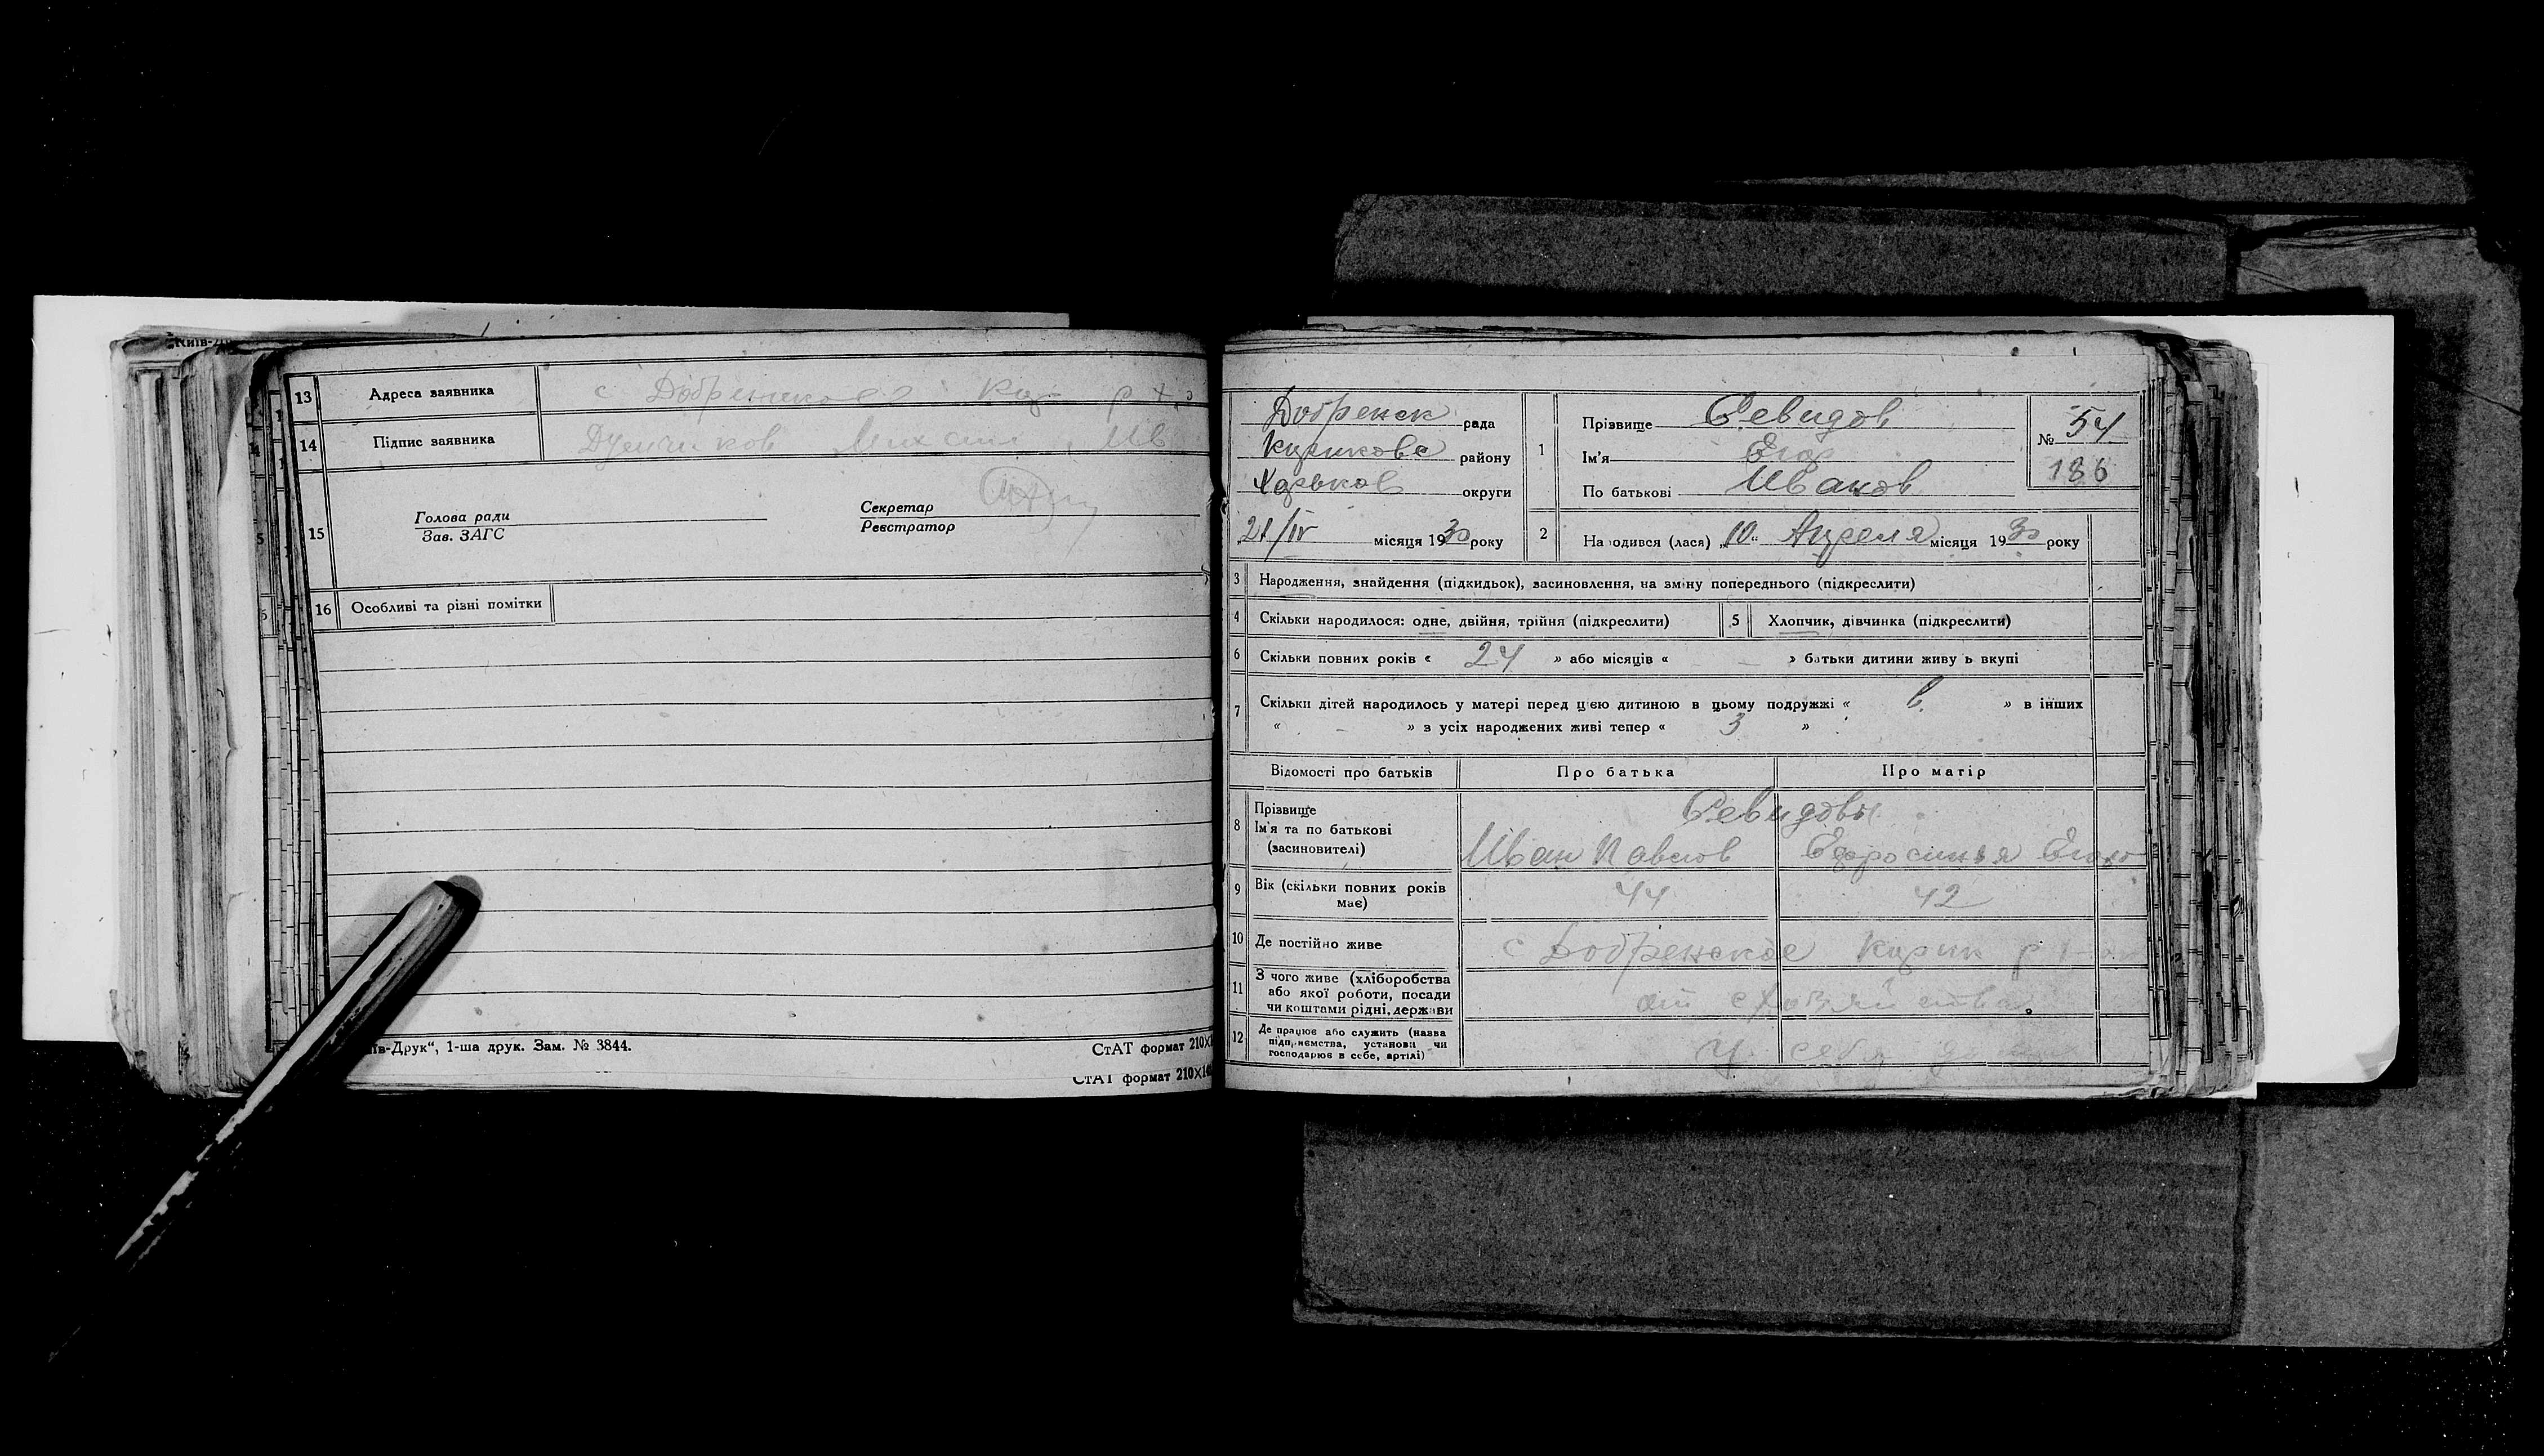 13 Адреса заявника с Добренское Кур р Х
14 Підпис заявника Михаил Ив
15 Голова ради
Зав. ЗАГС
Секретар
Реєстратор
16 Особливі та різні помітки
ів-Друк“, 1-ша друк. Зам. № 3844.
СтАТ формат 210×1
СтАТ формат 210×14
Добренск рада
района
Харьков округи
21/IV місяця 1930 року
1 Прізвище Севидов
Ім'я Егор
По батькові Иванов
№ 54
186
2 На одився (лася) „10“ Апреля місяця 1930 року
3 Народження, знайдення (підкидьок), засиновлення, на зміну попереднього (підкреслити)
4 Скільки народилося: одне, двійня, трійня (підкреслити) 5 Хлопчик, дівчинка (підкреслити)
6 Скільки повних років « 24 » або місяців « – » батьки дитини живу ь вкупі
7 Скільки дітей народилось у матері перед цією дитиною в цьому подружжі « » в інших
« – » з усіх народжених живі тепер « 3 »
Відомості про батьків Про батька Про матір
8 Прізвище
Ім'я та по батькові
(засиновителі)
Севидовы
Иван Павлов Ефросинья Егоро
9 Вік (скільки повних років
має)
44 42
10 Де постійно живе с Добренское р
11 З чого живе (хліборобства
або якої роботи, посади
чи коштами рідні, держави
от с хозяйства
12 Де працює або служить (назва
підприємства, установи чи
господарює в себе, артілі)
У себя